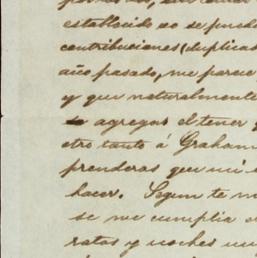 establecido no se puede
contribuciones (duplicad
año pasado, me parece
y que naturalmente
agregar el tener
otro tanto á Graham
prenderas que mi
hacer. Segun te m
se me cumplia e
ratos y noches muy